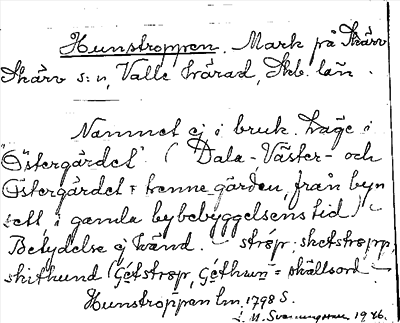 Hunstroppen. Mark på Skärv
Skärv s:n, Valle härad, Skb. län.
Namnet ej i bruk. Läge i
"Östergärdet" (Dala- Väster- och
Östergärdet = trenne gärden, från byn
sett i gamla bybebyggelsens tid)
Betydelse ej känd. — stróp, sketstropp,
skithund (Gétstrop, Géthun = skällsord
Hunstroppen lm. 1798 S.
1926.